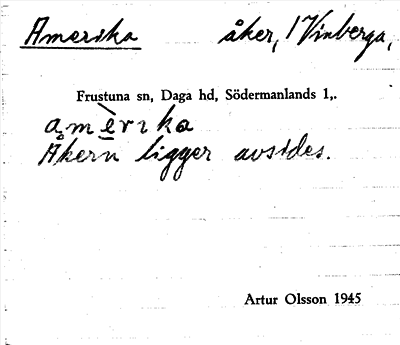 Amerika åker, 1 Vinberga,
Frustuna sn, Daga hd, Södermanlands l,.
amèrika
Åkern ligger avsides.
Artur Olsson 1945